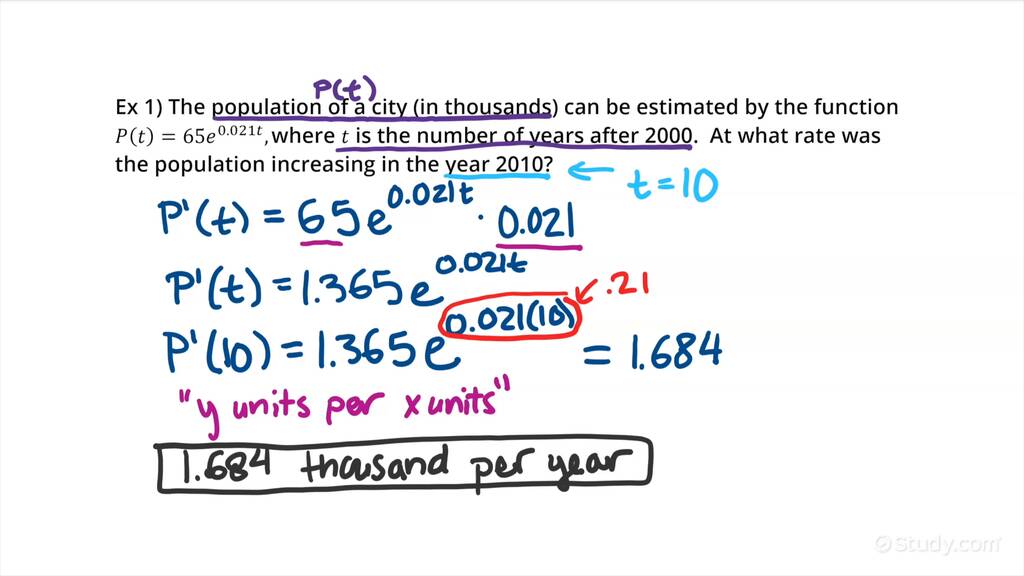 P(t)
Ex 1) The population of a city (in thousands) can be estimated by the function
P(t) = 65e^{0.021t}, where t is the number of years after 2000. At what rate was
the population increasing in the year 2010?
t = 10
P'(t) = 65e^{0.021t} · 0.021
P'(t) = 1.365e^{0.021t}
.21
P'(10) = 1.365e^{0.021(10)} = 1.684
"y units per x units"
1.684 thousand per year
Study.com